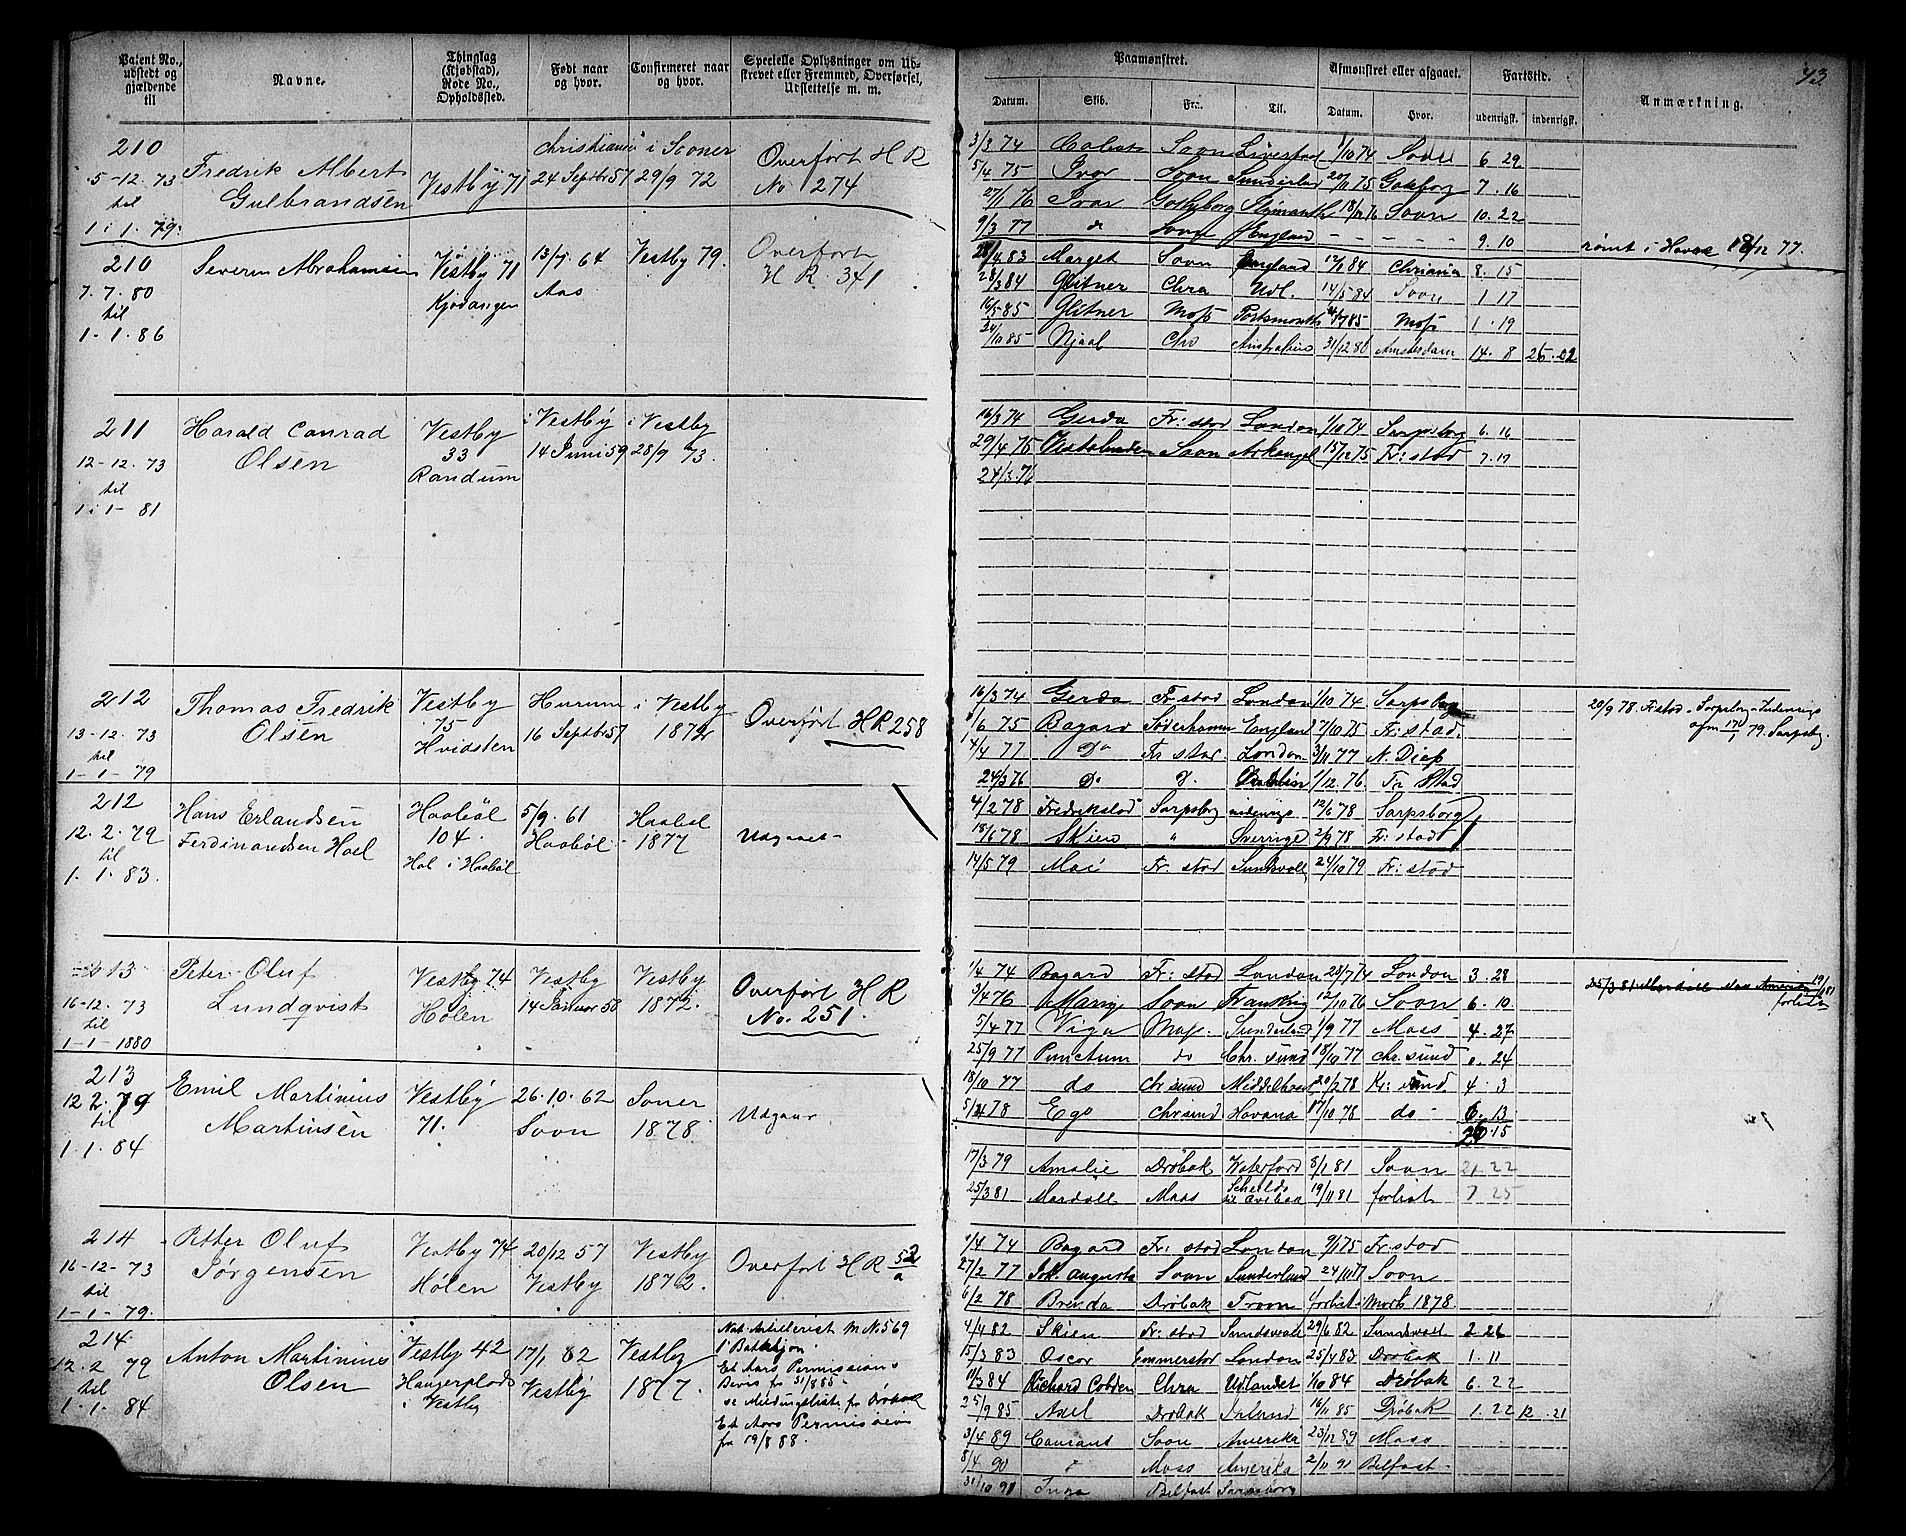 Patent No., udstedt og gjældende til
Navne.
Thinglag (Kjøbstad), Rode No., Opholdssted.
Født naar og hvor.
Confirmeret naar og hvor.
Specielle Oplysninger om Udskrevet eller Fremmed, Overførsel, Udslettelse m. m.
Paamønstret.
Afmønstret eller afgaaet.
Fartstid.
Anmærkning.
43
Datum.
Skib.
Fra.
Til.
Datum.
Hvor.
udenrigsk.
indenrigsk.
210
5-12. 73
til
1-1. 79.
Fredrik Albert
Gulbrandsen
Vestby 71
Christiania
24 Septbr 57
i Sooner
29/9 72
Overført H R
No 274
3/3 74 Soon Liverpool 1/10 74 Soon 6. 29
5/4 75 Ivar Soon Sunderland 20/11 75 7. 16
27/1 76 Ivar Gotheborg 18/12 76 Soon 10. 22
9/3 77 do Soon England 9. 10
rømt i Havre 18/12 77.
210
7. 7. 80
til
1-1-86
Severin Abrahamsen
Vestby 71
Kjøvangen
13/7. 64
Aas
Vestby 79.
Overført
H R 341
28/4 83 Marget Soon England 12/1 84 Chriania 8. 15
28/3 84 Glitner Chra Udl. 14/5 84 Soon 1. 17
16/5 85 Glitner Moss Portsmouth Moss 1. 19
24/10 85 Njaal Chra Australien 31/12 86 Amsterdam 14. 8
211
12-12. 73
til
1-1-81
Harald Conrad
Olsen
Vestby
33
Randum
i Vestby
14 Juni 59
i Vestby
28/9 73.
16/3 74 Gerda Fr: stad London 1/10 74 Sarpsborg 6. 16
29/4 75 Soon Arkengel 15/12 75 Fr: stad 7. 17
24/3. 76
212
13-12. 73
til
1-1-79
Thomas Fredrik
Olsen
Vestby
75
Hvidsten
Hurum
16 Septbr 57
i Vestby
1872
Overført H R 258
16/3 74 Gerda Fr: stad London 1/10 74 Sarpsborg
1/6 75 Bagard Søderhamn England 27/10 75 Fr: stad.
4/4 77 Do Fr stad. London 3/11 77 N. Diep
24/3 76 Do D. 1/12. 76 Fr Stad
4/2 78 Fredrikstad Sarpsborg indenrigs 12/6 78 Sarpsborg
18/6 78 Skien " Sverrige 2/9 78 Fr: stad
20/9 78. Fr.stad - Sarpsborg - Indenrigs
afm 17/1 79. Sarpsborg.
212
12. 2. 79
til
1. 1. 83.
Hans Erlandsen
Ferdinandsen Hoel
Haabøl
104.
Hol i Haabøl
5/9. 61
Haabøl
Haabøl
1877
Udgaaet
14/5 79 Mai Fr: stad Sundsvall 24/10 79 Fr: stad
213
16-12. 73
til
1-1-1880
Peter Oluf
Lundqvist
Vestby 74
Hølen
Vestby
14 Januar 58
Vestby
1872.
Overført H R
No. 251.
1/4 74 Bagard Fr: stad London 28/7 74 London 3. 28
3/4 76 Mary Soon Frankrig 12/10 76 Soon 6. 10
5/4 77 Viga Moss. Sunderland 1/9 77 Moss 4. 27
25/9 77 Punctum do Chr. sund 18/10 77 Chr. sund 0. 24
18/10 77 do Chr sund 20/2 78 Kr: sund 4. 3
78 Ego Chrsund Havana 17/10 78 do 6. 13
213
12 2. 79
til
1. 1. 84
Emil Martinius
Martinsen
Vestby
71.
26. 10. 62
Soon
Soner
1878.
Udgaar
17/3 79 Amalie Drøbak Waterford 8/1 81 Soon 21. 22
25/3 81 Mardøll Moss 19/11 81 forlist 7 25
214
16-12. 73
til
1-1-79.
Petter Oluf
Jørgensen
Vestby 74
Hølen
20/12 57
Vestby
Vestby
1872.
Overført H R 52/a
1/4 74 Bagard Fr: stad London 9/1 75 Fr: stad
27/2 77 Joh. Augusta Soon Sunderland 24/10 77 Soon
6/2 78 Brenda Drøbak Troon forlist Marts 1878.
214
12. 2 79
til
1. 1. 84
Anton Martinius
Olsen
Vestby 42
Haugerplads
i Vestby
17/1 62
Vestby
Vestby
1877.
M No 569
Et Aars Permissions
Bevis fr 31/8 85 -
se Meldingsliste fr Drøbak
Et Aars Permission
fra 19/8 88.
4/4 82 Skien Fr: stad Sundsvall 29/6 82 Sundsvall 2. 26
15/3 83 Oscar London 25/4 83 Drøbak 1. 11
11/3 84 Richard Cobden Chra Udlandet 1/10 84 Drøbak 6. 22
25/9 85 Axel Drøbak Irland 16/11 85 Drøbak 1. 22 12. 21
3/4 89 Soon Amerika 23/12 89 Moss
8/4 90 Moss Amerika 2/11 91 Belfast
31/10 91 Inga Belfast Sarpsborg